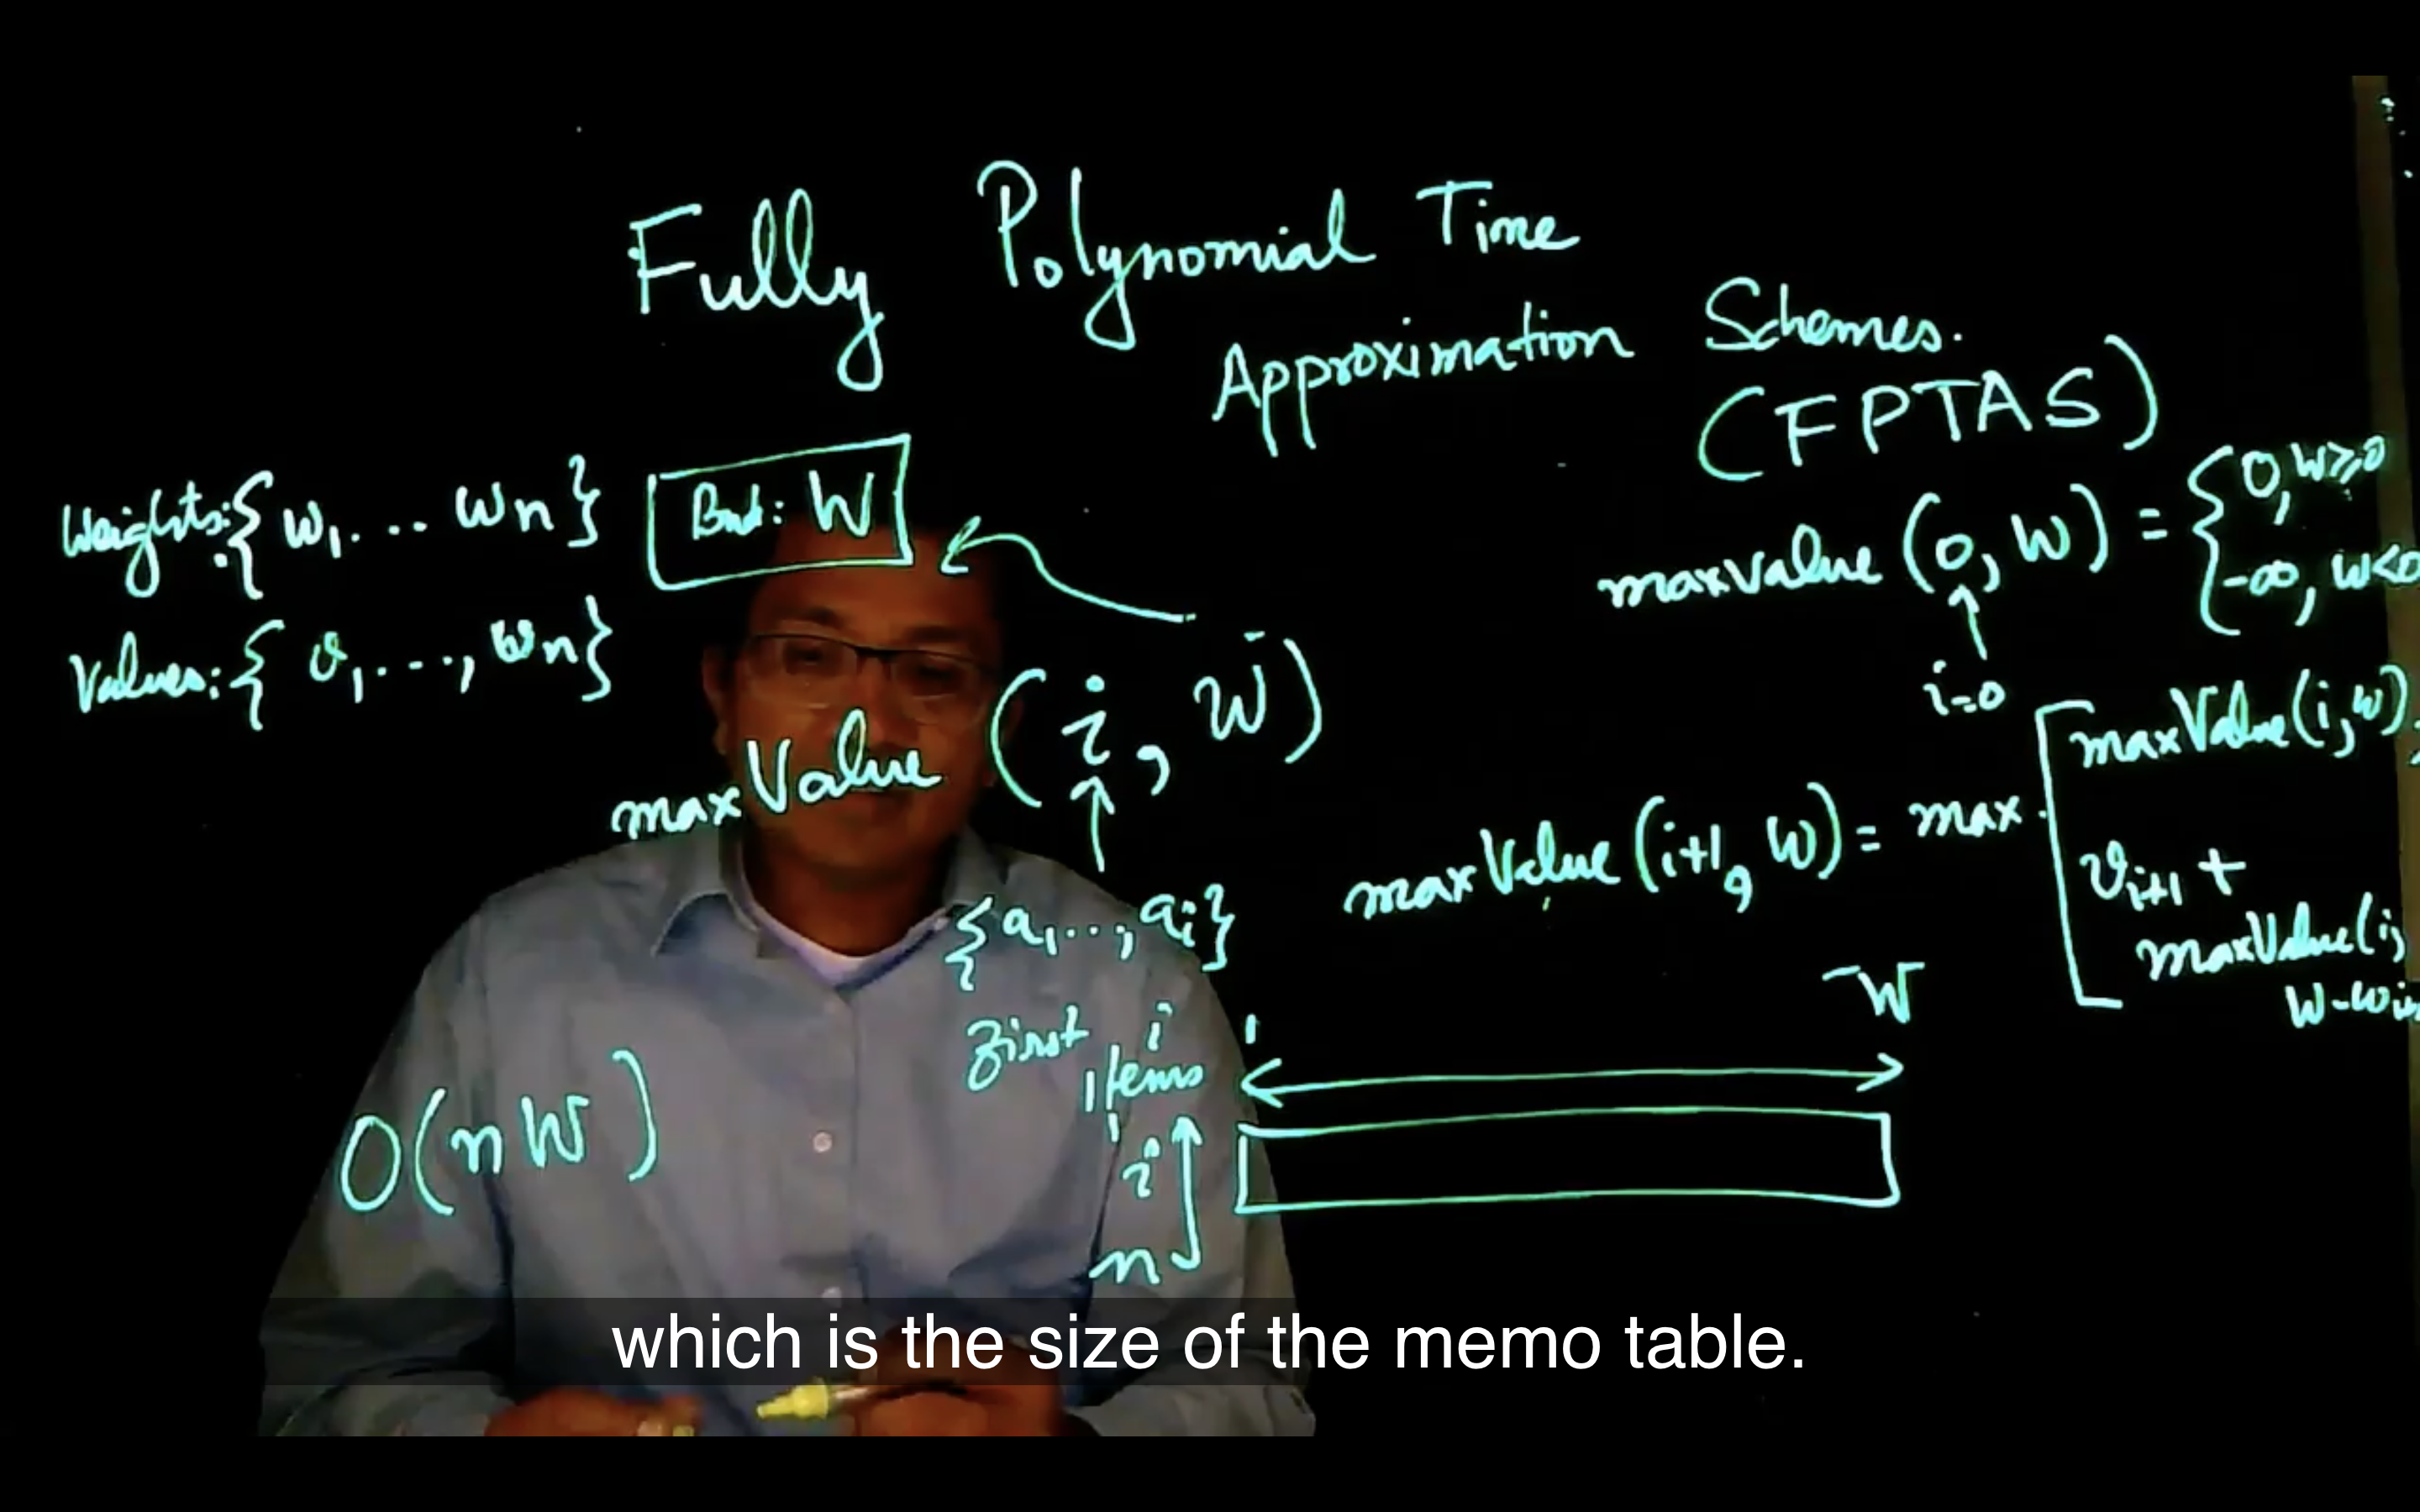 Fully Polynomial Time
Approximation Schemes.
(FPTAS)
Weights: { w₁ ... wₙ } Bnd: W
Values: { v₁, ..., wₙ }
maxValue (i, W)
{a₁ ..., aᵢ}
first i
Items
maxValue (0, W) = { 0, W ≥ 0
-∞, W < 0
i=0
maxValue (i+1, W) = max [ maxValue (i, W),
vᵢ₊₁ +
maxValue (i,
W - wᵢ
1 W
O(nW)
1
i
n
which is the size of the memo table.